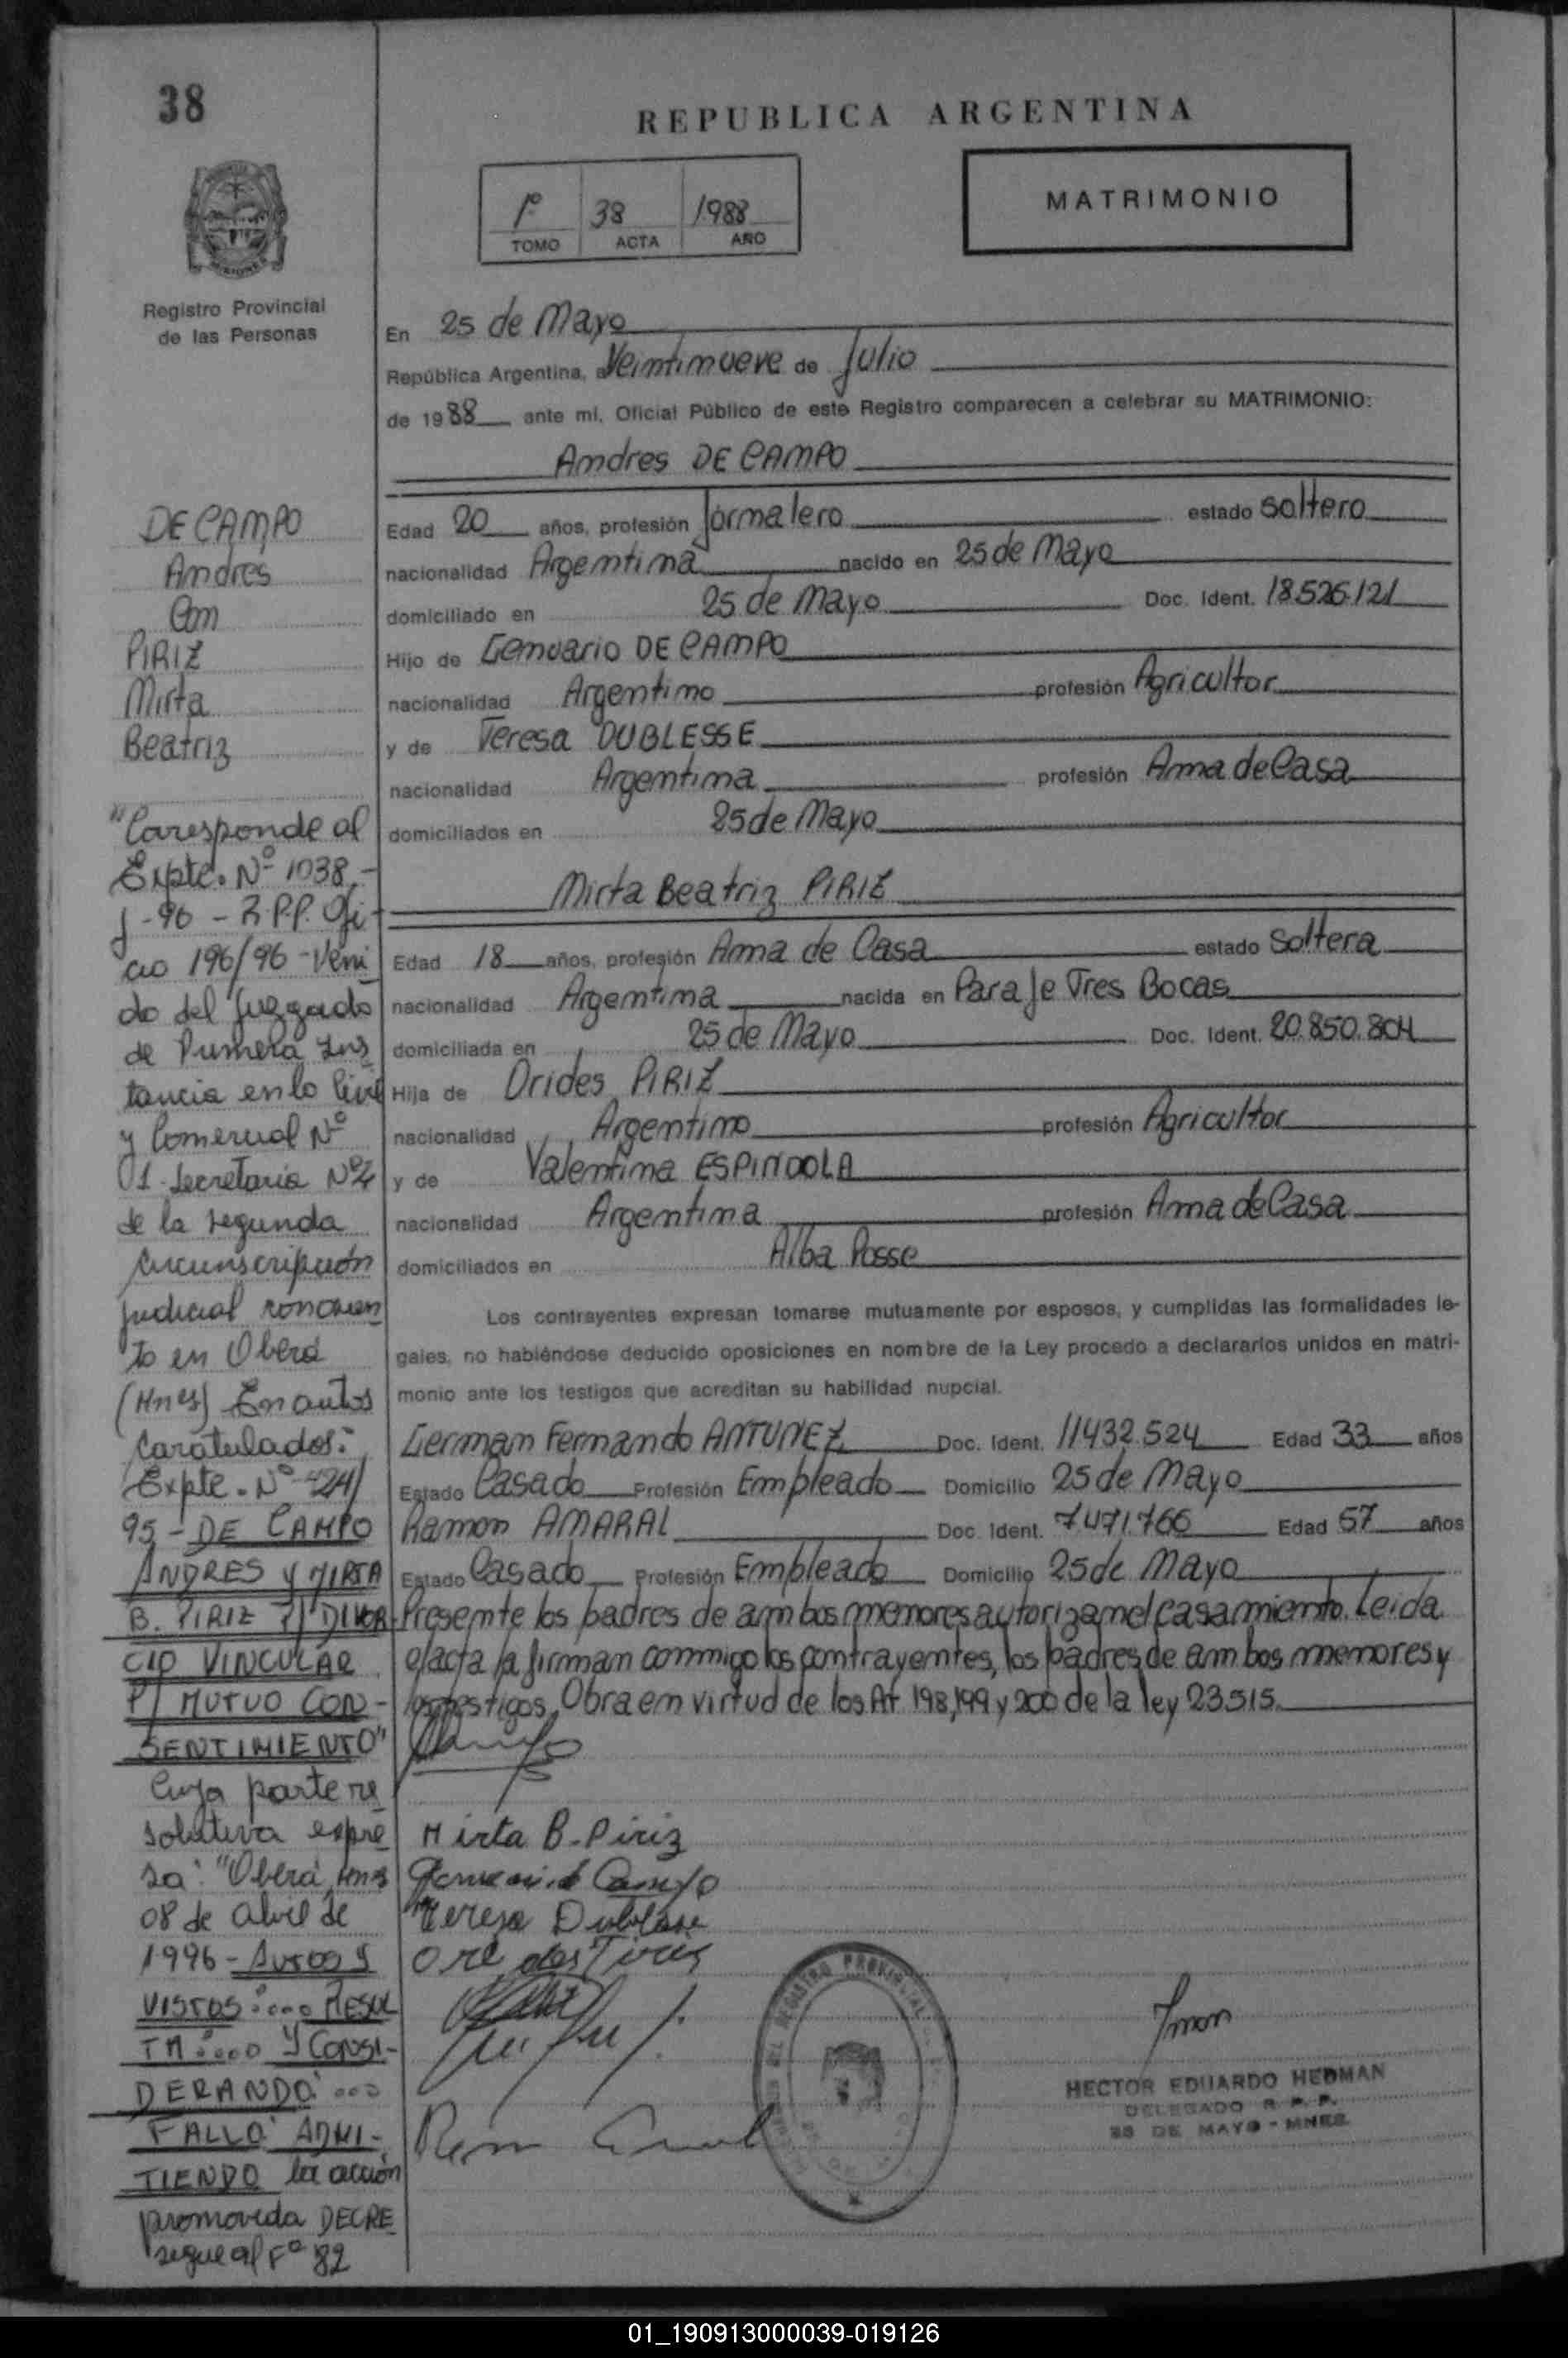 38
REPUBLICA ARGENTINA
1º 38 1988
TOMO ACTA AÑO
MATRIMONIO
MISIONES
Registro Provincial
de las Personas
En 25 de Mayo
República Argentina, a Veintinueve de Julio
de 1988 ante mi, Oficial Público de este Registro comparecen a celebrar su MATRIMONIO:
Andres DE CAMPO
Edad 20 años, profesión Jornalero estado soltero
nacionalidad Argentina nacido en 25 de Mayo
domiciliado en 25 de Mayo Doc. Ident. 18.526.121
Hijo de Genuario DE CAMPO
nacionalidad Argentino profesión Agricultor
y de Teresa DUBLESSE
nacionalidad Argentina profesión Ama de Casa
domiciliados en 25 de Mayo
Mirta Beatriz PIRIZ
Edad 18 años, profesión Ama de Casa estado soltera
nacionalidad Argentina nacida en Paraje Tres Bocas
domiciliada en 25 de Mayo Doc. Ident. 20.850.804
Hija de Orides PIRIZ
nacionalidad Argentino profesión Agricultor
y de Valentina ESPINDOLA
nacionalidad Argentina profesión Ama de Casa
domiciliados en Alba Posse
Los contrayentes expresan tomarse mutuamente por esposos, y cumplidas las formalidades le-
gales, no habiéndose deducido oposiciones en nombre de la Ley procedo a declararlos unidos en matri-
monio ante los testigos que acreditan su habilidad nupcial.
German Fernando ANTUNEZ Doc. Ident. 11432.524 Edad 33 años
Estado Casado Profesión Empleado Domicilio 25 de Mayo
Ramon AMARAL Doc. Ident. 7.471.766 Edad 57 años
Estado Casado Profesión Empleado Domicilio 25 de Mayo
Presente los padres de ambos menores autorizan el casamiento. Leida
el acta la firman conmigo los contrayentes, los padres de ambos menores y
los testigos. Obra en virtud de los At 198,199 y 200 de la ley 23.515.
Mirta B. Piriz
Teresa Dublese
HECTOR EDUARDO HEDMAN
DELEGADO R.P.P.
25 DE MAYO - MNES.
DE CAMPO
Andres
Con
PIRIZ
Mirta
Beatriz
"Coresponde al
Expte. Nº 1038,-
J-96 - R.P.P. Ofi-
cio 196/96 - Veni
do del Juzgado
de Primera Ins
tancia en lo Civil
y Comercial Nº
01 Secretaria Nº
de la segunda
circunscripción
judicial con asien
to en Oberá
(Mnes) En autos
caratulados:
Expte. Nº 424/
95 - DE CAMPO
ANDRES Y MIRTA
B. PIRIZ P/ DIVOR-
CIO VINCULAR
P/ MUTUO CON-
SENTIMIENTO"
Cuya parte re
solutiva expre
sa: "Oberá, Mnes
08 de abril de
1996 - AUTOS Y
VISTOS:... RESUL
TA:... Y CONSI-
DERANDO:...
FALLO: ADMI-
TIENDO la acción
promovida DECRE
sigue al Fº 82
01_190913000039-019126